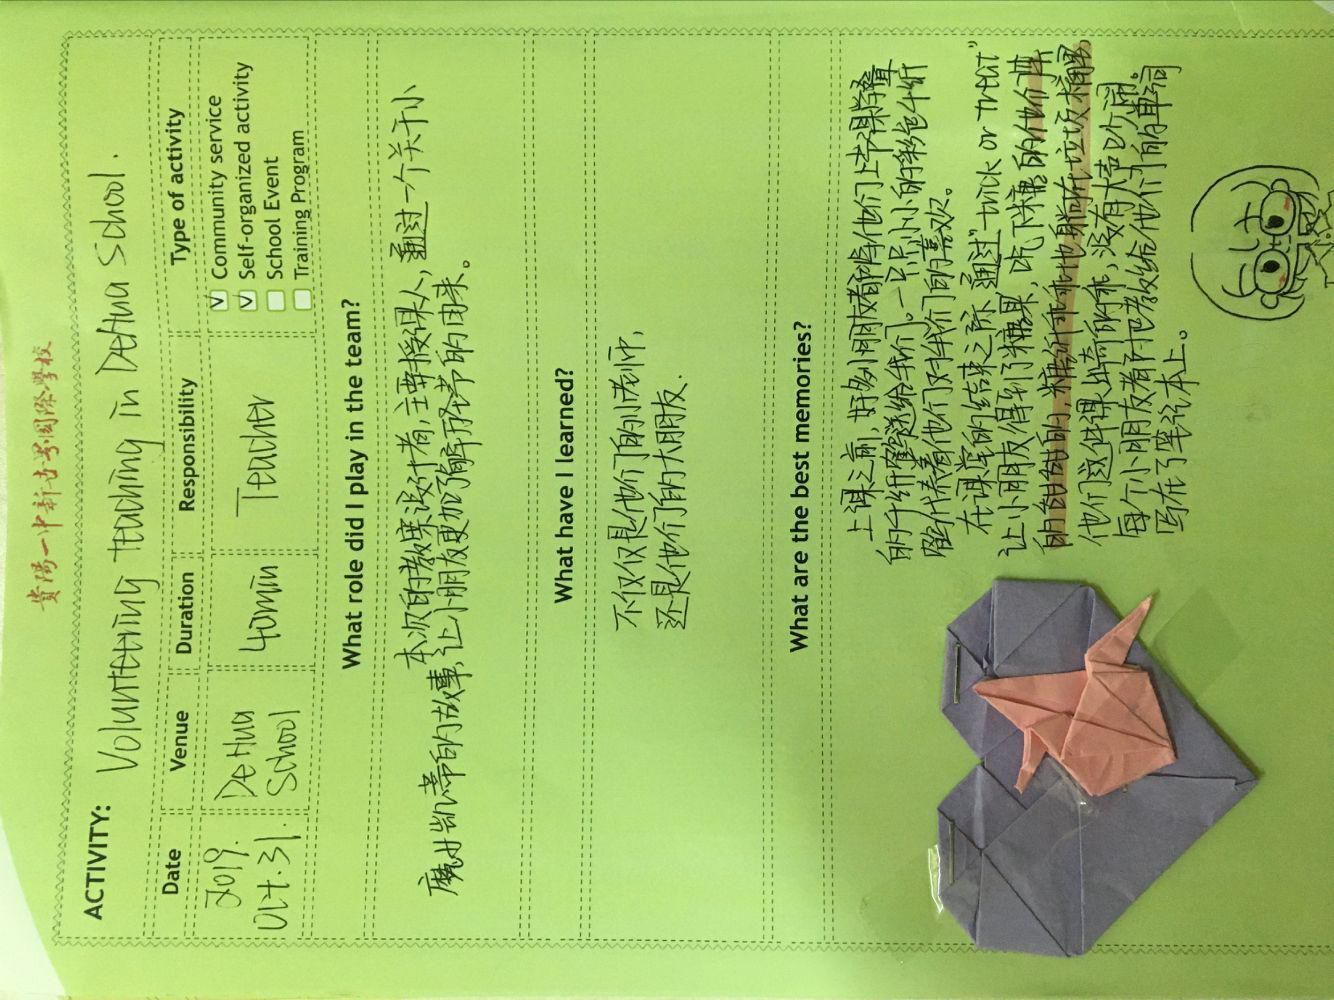 貴陽一中新古号國際學校
ACTIVITY: Volunteering teaching in DeHua School.
Date Venue Duration Responsibility Type of activity
2019. Oct. 31.
DeHua School
40min
Teacher
V Community service
V Self-organized activity
School Event
Training Program
What role did I play in the team?
本次的教案设计者,主要授课人,通过一个关于小
魔女凯蒂的故事,让小朋友更加了解万圣节的由来。
What have I learned?
不仅仅是他们的老师,
还是他们的大朋友.
What are the best memories?
上课之前,好多小朋友都将他们上节课学叠
的千纸鹤送给我们。一只只小小的彩色千纸
鹤代表着他们对我们的喜欢。
在课堂的结束之际,通过"trick or treat"
让小朋友得到了糖果,吃下糖的他们
的甜甜的,糖纸乖乖地躺在垃圾桶里,
他们这节课出奇的乖,没有大声吵闹。
每个小朋友都把教给他们的单词
写在了笔记本上。